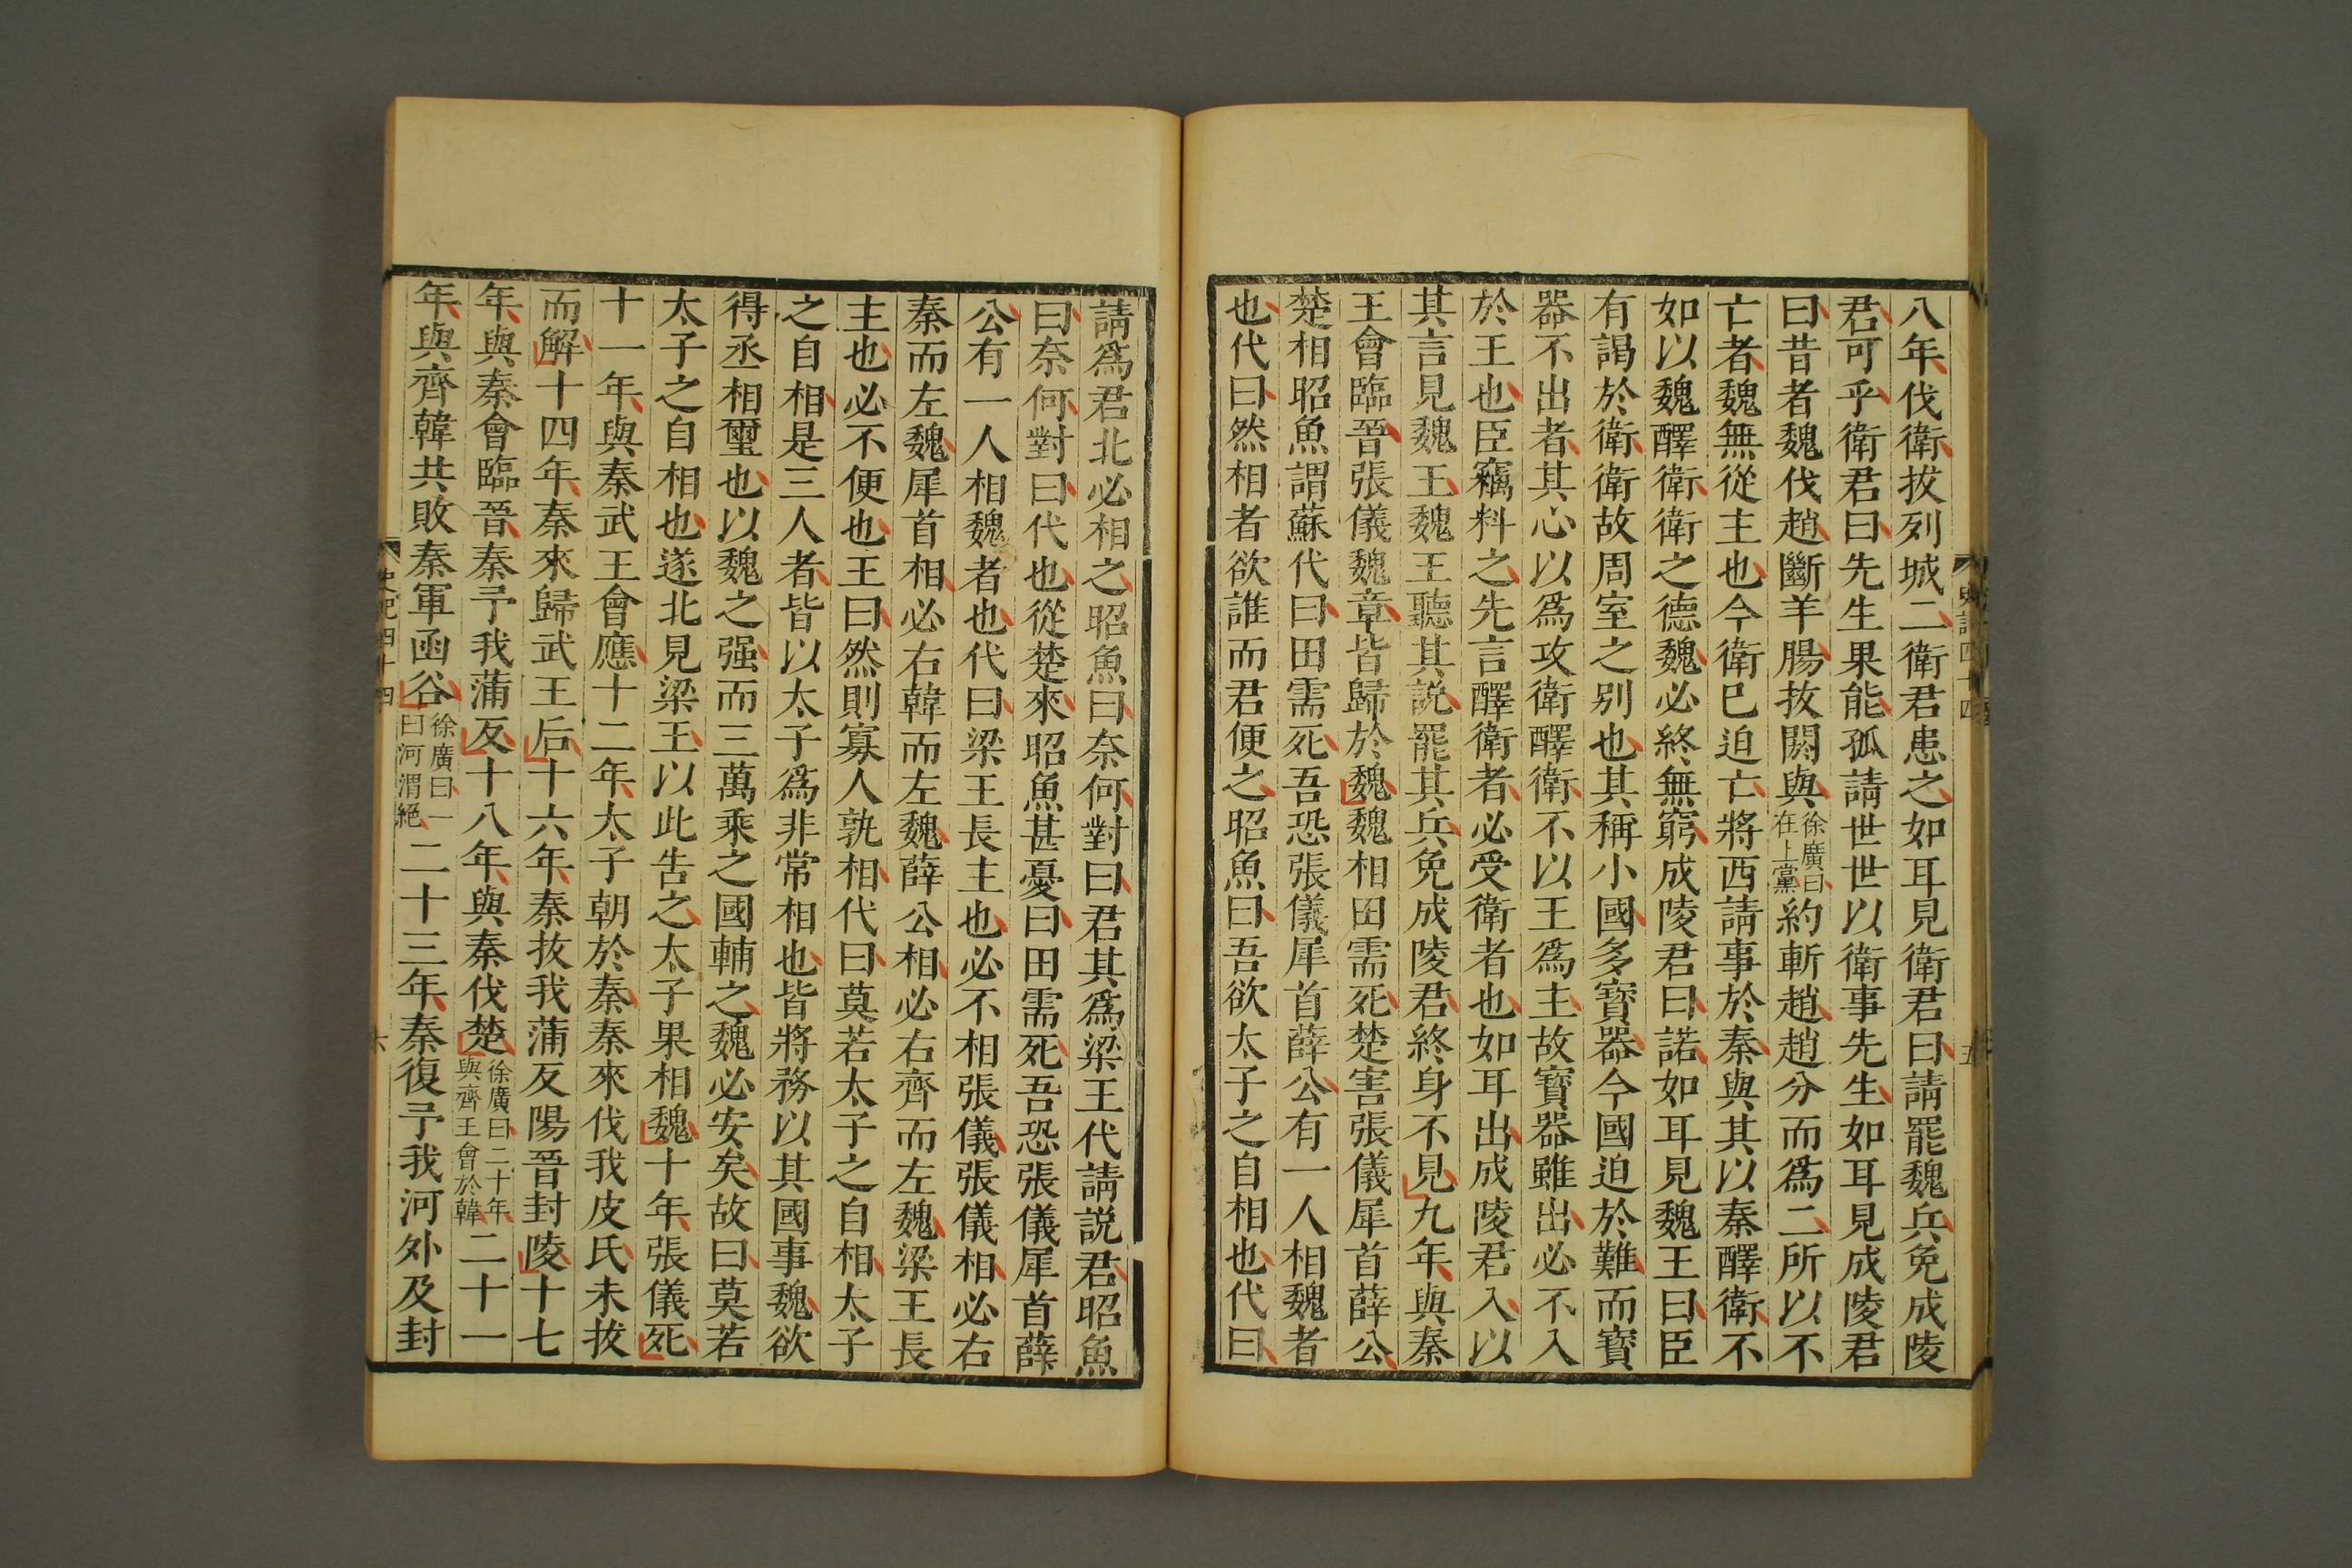 八年伐衛拔列城二衛君患之如耳見衛君曰請罷魏兵免成陵
君可乎衛君曰先生果能孤請世世以衛事先生如耳見成陵君
曰昔者魏伐趙斷羊腸拔閼與徐廣曰在上黨約斬趙趙分而爲二所以不
亡者魏無從主也今衛已迫亡將西請事於秦與其以秦醳衛不
如以魏醳衛衛之德魏必終無窮成陵君曰諾如耳見魏王曰臣
有謁於衛衛故周室之別也其稱小國多寶器今國迫於難而寶
器不出者其心以爲攻衛醳衛不以王爲主故寶器雖出必不入
於王也臣竊料之先言醳衛者必受衛者也如耳出成陵君入以
其言見魏王魏王聽其説罷其兵免成陵君終身不見九年與秦
王會臨晉張儀魏章皆歸於魏魏相田需死楚害張儀犀首薛公
楚相昭魚謂蘇代曰田需死吾恐張儀犀首薛公有一人相魏者
也代曰然相者欲誰而君便之昭魚曰吾欲太子之自相也代曰
史記四十四
五
請爲君北必相之昭魚曰奈何對曰君其爲梁王代請説君昭魚
曰奈何對曰代也從楚來昭魚甚憂曰田需死吾恐張儀犀首薛
公有一人相魏者也代曰梁王長主也必不相張儀張儀相必右
秦而左魏犀首相必右韓而左魏薛公相必右齊而左魏梁王長
主也必不便也王曰然則寡人孰相代曰莫若太子之自相太子
之自相是三人者皆以太子爲非常相也皆將務以其國事魏欲
得丞相璽也以魏之强而三萬乘之國輔之魏必安矣故曰莫若
太子之自相也遂北見梁王以此告之太子果相魏十年張儀死
十一年與秦武王會應十二年太子朝於秦秦來伐我皮氏未拔
而解十四年秦來歸武王后十六年秦拔我蒲反陽晉封陵十七
年與秦會臨晉秦予我蒲反十八年與秦伐楚徐廣曰二十年與齊王會於韓二十一
年與齊韓共敗秦軍函谷徐廣曰一曰河渭絕二十三年秦復予我河外及封
史記四十四
六